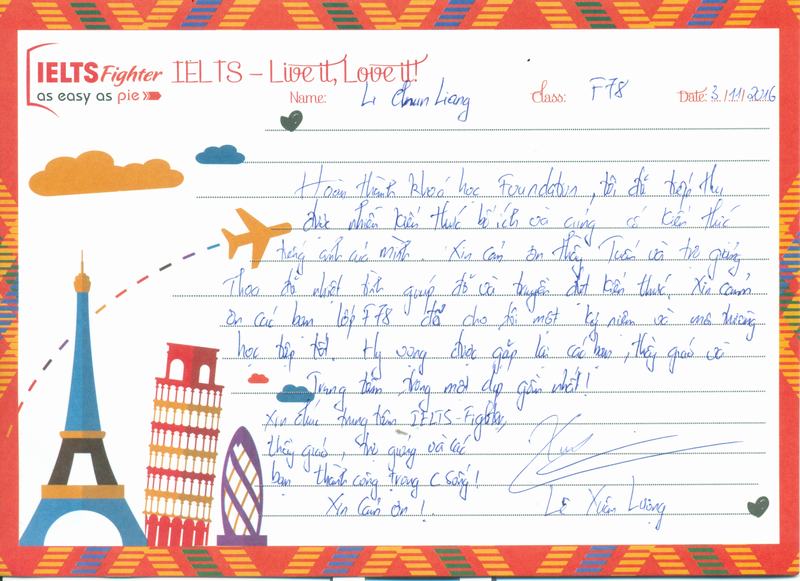 IELTS Fighter IELTS - Live it, Love it!
as easy as pie
Name: Li Chun Liang Class: F78 Date: 3/11/2016
Hoàn thành khoá học Foundation, tôi đã tiếp thu
được nhiều kiến thức bổ ích và củng cố kiến thức
tiếng anh của mình. Xin cản ơn thầy Tuấn và trợ giảng
Thoa đã nhiệt tình giúp đỡ và truyền đạt kiến thức. Xin cảm
ơn các bạn lớp F78 đã cho tôi một kỷ niệm và môi trường
học tập tốt. Hy vọng được gặp lại các bạn, thầy giáo và
Trung tâm trong một dịp gần nhất!
Xin chúc trung tâm IELTS-Fighter,
thầy giáo, trợ giảng và các
bạn thành công trong c sống!
Xin cản ơn!
Lê Xuân Lượng